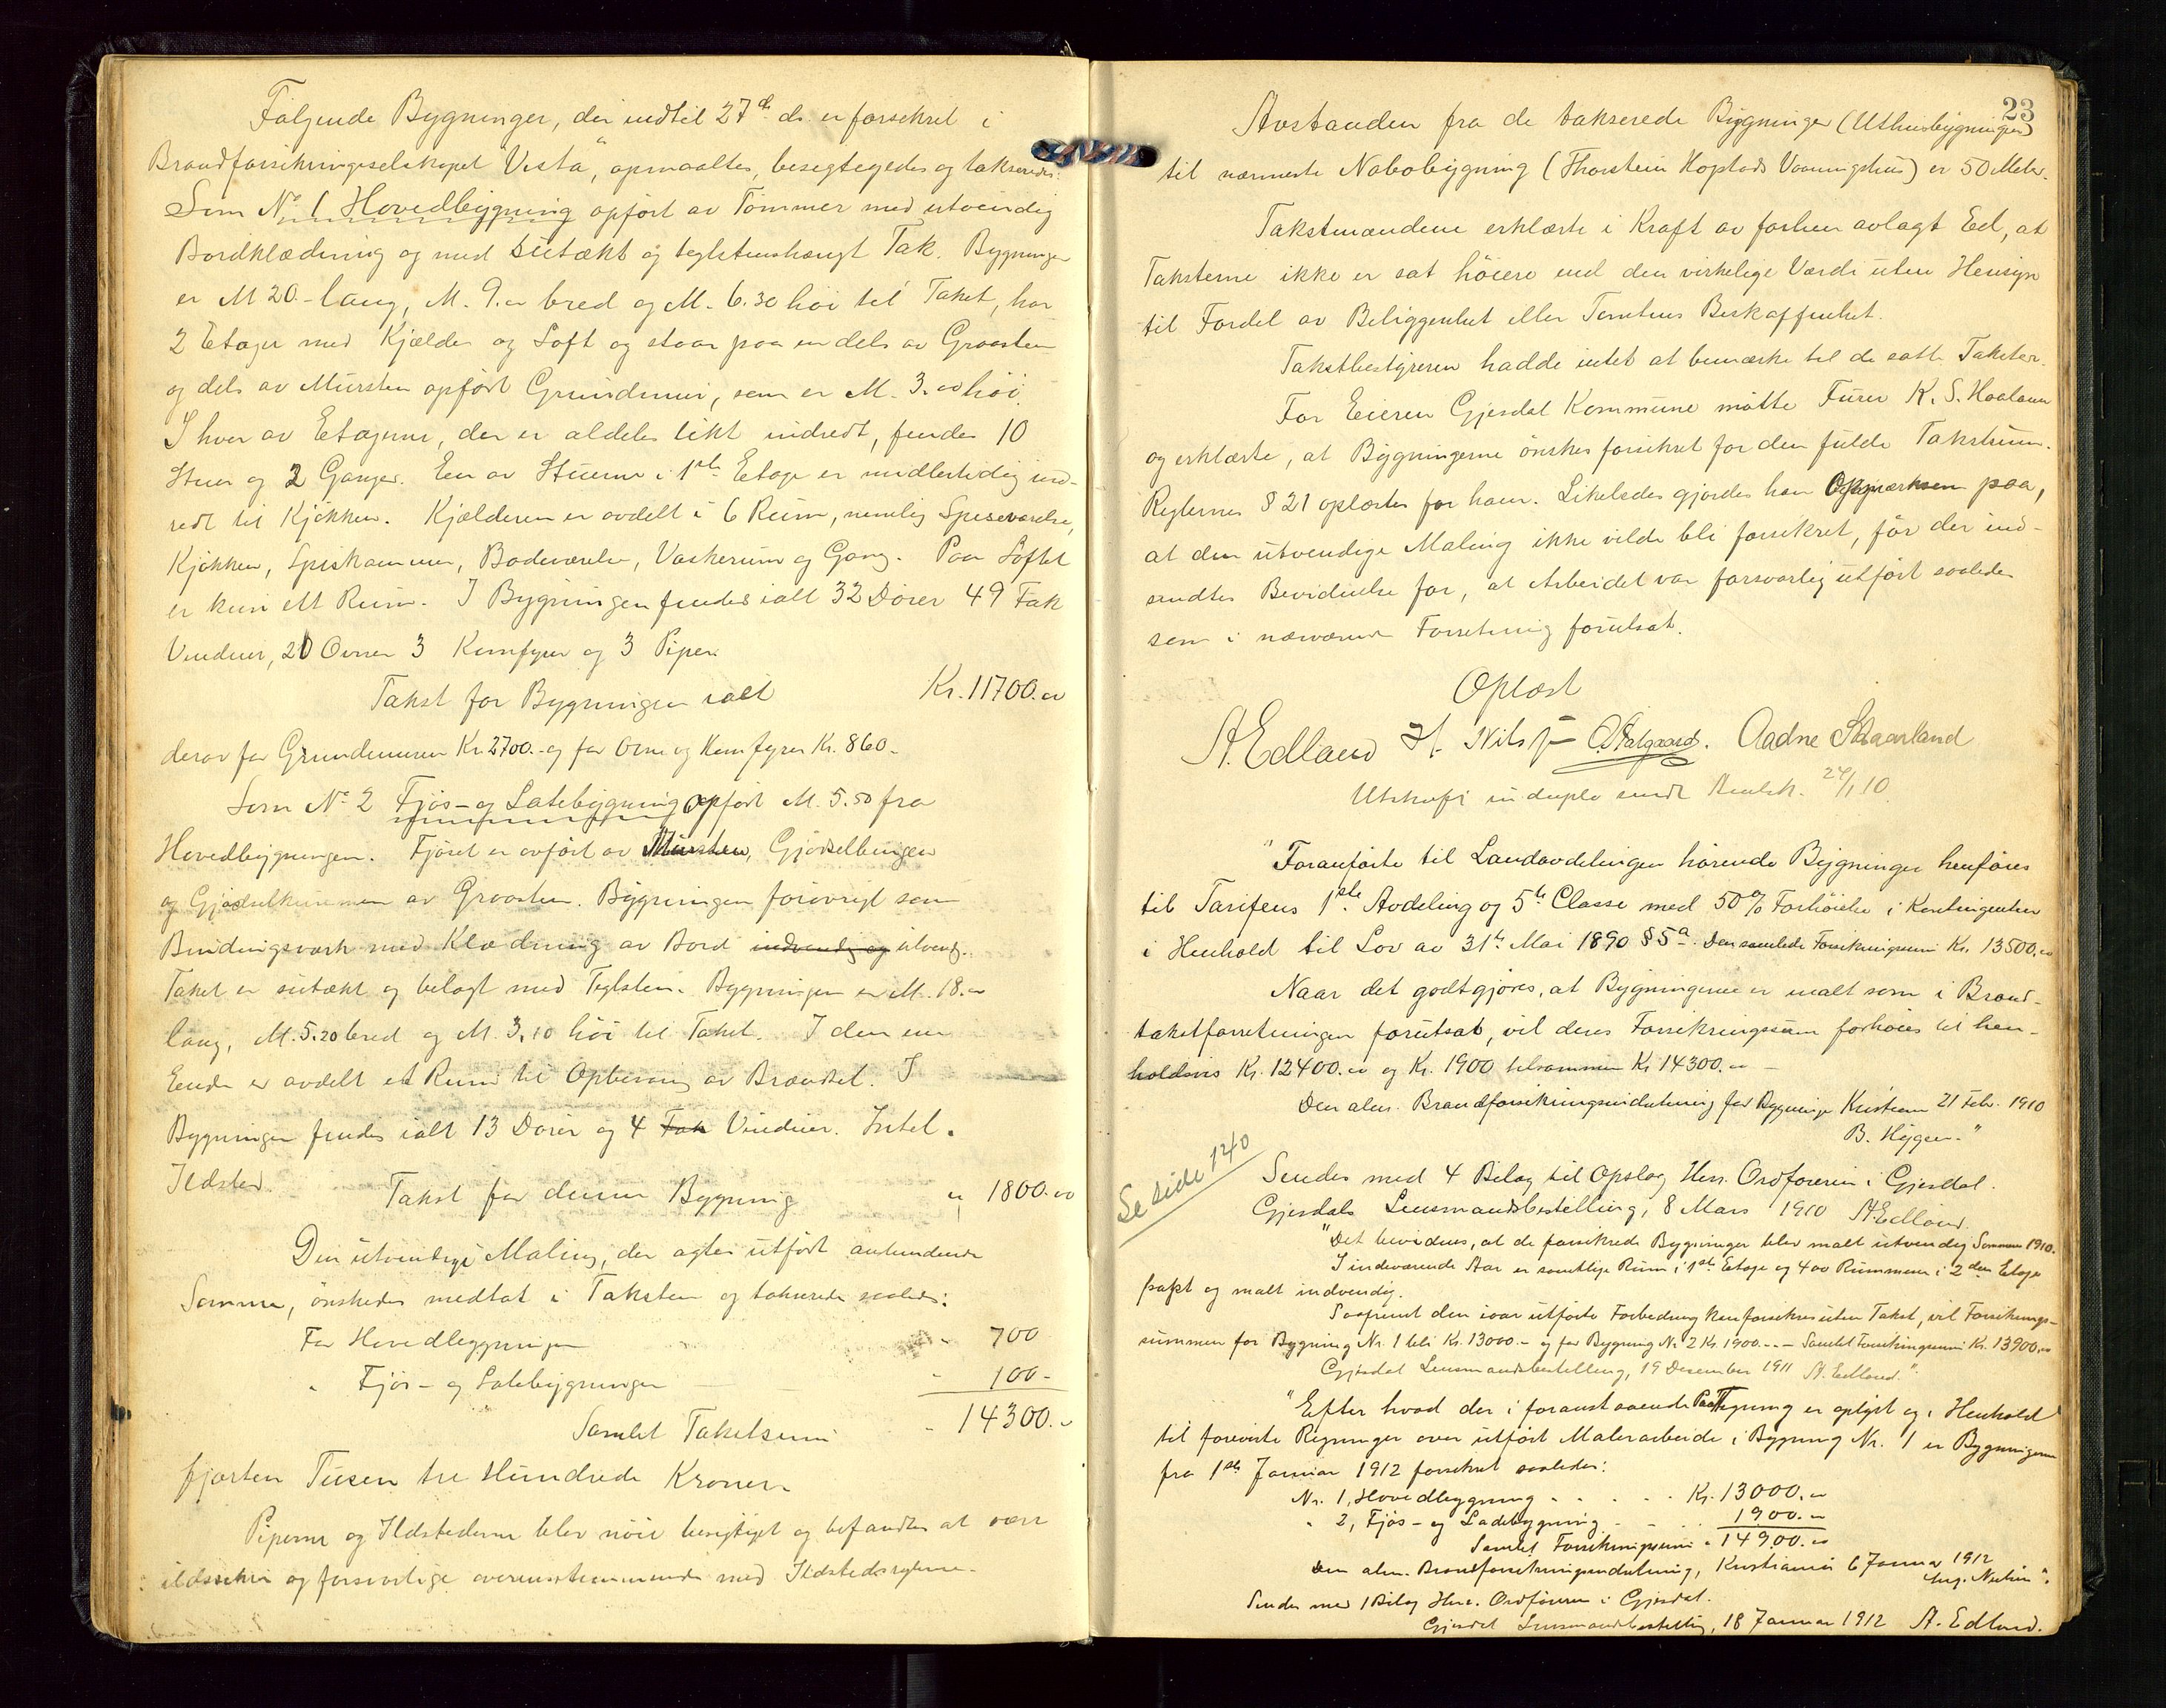 Følgende Bygninger, der indtil 27de ds. er forsikret i
Brandforsikringsselskapet "Vesta", opmaaltes, besigtegedes og takseredes:
Som No 1 Hovedbygning opført av Tømmer med utvendig
Bordklædning og med sutækt og teglstenshængt Tak. Bygningen
er M 20.- lang, M. 9.00 bred og M. 6.30 høi til Taket, har
2 Etager med Kjælder og Loft og staar paa en dels av Graasten
og dels av Mursten opført Grundmur, som er M. 3.00 høi.
I hver av Etagerne, der er aldeles likt indredt, findes 10
Stuer og 2 Ganger. Een av Stuerne i 1ste Etage er midlertidig ind-
redt til Kjøkken. Kjælderen er avdelt i 6 Rum, nemlig Spiseværelse,
Kjøkken, Spiskammer, Badeværelse, Vaskerum og Gang. Paa Loftet
er kun ett Rum. I Bygningen findes ialt 32 Dører 49 Fak
Vinduer, 20 Ovner 3 Komfyrer og 3 Piper.
Takst for Bygningen ialt Kr. 11700.00
derav for Grundmuren Kr. 2700.- og for Ovne og Komfyrer Kr. 860.-
Som No 2 Fjøs- og Ladebygning opført M. 5.50 fra
Hovedbygningen. Fjøset er opført av Mursten, Gjødselbingen
og Gjødselkummen av Graasten. Bygningen forøvrigt som
Bindingsverk med Klædning av Bord indvendig og utvendig.
Taket er sutækt og belagt med Teglsten. Bygningen er M. 18.00
lang, M. 5.20 bred og M. 3.10 høi til Taket. I den ene
Ende er avdelt et Rum til Opbevaring av Brændsel. I
Bygningen findes ialt 13 Dører og 4 Fak Vinduer. Intet
Ildsted.
Takst for denne Bygning " 1800.00
Den utvendige Maling, der agtes utført antundende
Sommer, ønskedes medtat i Taksten og takserede saaledes:
For Hovedbygningen " 700
" Fjøs- og Ladebygningen " 100-
Samlet Takstsum " 14300.-
fjorten Tusen tre Hundrede Kroner.
Piperne og Ildstederne blev nøie besigtiget og befandtes at være
ildssikre og forsvarlige overensstemmende med Ildstedsreglerne.
23
Avstanden fra de takserede Bygninger (Uthusbygningen)
til nærmeste Nabobygning (Thorstein Hoplads Vaaningshus) er 50 Meter.
Takstmændene erklærte i Kraft av forhen avlagt Eed, at
Taksterne ikke er sat høiere end den virkelige Værdi uten Hensyn
til Fordel av Beliggenhet eller Tomtens Beskaffenhet.
Takstbestyreren hadde intet at bemærke til de satte Takster.
For Eieren Gjesdal Kommune møtte Furer K. S. Haaland
og erklærte, at Bygningerne ønskes forsikret for den fulde Takstsum.
Reglernes § 21 oplæstes for ham. Likeledes gjordes han Opmærksom paa,
at den utvendige Maling ikke vilde bli forsikret, før der ind-
sendtes Bevidnelse for, at Arbeidet var forsvarlig utført saaledes
som i nærværende Forretning forutsat.
Oplæst
A. Edland H. Nilsson O. Aalgaard. Aadne Skaarland
Utskrift in duplo sendt Brulsk. 24/1 10
"Foranførte til Landavdelingen hørende Bygninger henføres
til Tarifens 1ste Avdeling og 5te Classe med 50% Forhøielse i Kontingenten
i Henhold til Lov av 31te Mai 1890 § 5a. Den samlede Forsikringssum Kr. 13500.00
Naar det godtgjøres, at Bygningerne er malt som i Brand-
takstforretningen forutsat, vil deres Forsikringssum forhøies til hen-
holdsvis Kr. 12400.00 og Kr. 1900 tilsammen Kr 14300.00 -
Den alm. Brandforsikringsindretning for Bygninge Kristiania 21 Febr. 1910
B. Hygen."
Se side 140
Sendes med 4 Bilag til Opslag Herr. Ordføreren i Gjesdal.
Gjesdals Lensmandsbestilling, 8 Mars 1910 A. Edland.
"Det bevidnes, at de forsikrede Bygninger blev malt utvendig Sommeren 1910.
I indeværende Aar er samtlige Rum i 1ste Etage og 4 av Rummene i 2den Etage
papt og malt indvendig.
Saafremt den iaar utførte Forbedring kan forsikres uten Takst, vil Forsikrings-
summen for Bygning Nr. 1 bli Kr. 13000.- og for Bygning Nr 2 Kr. 1900.-- Samlet Forsikringssum Kr. 13900.00
Gjesdal Lensmandsbestilling, 19 Desember 1911 A. Edland."
"Efter hvad der i foranstaaende Paategning er oplyst og i Henhold
til foreviste Regninger over utført Malerarbeide i Bygning Nr. 1 er Bygningerne
fra 1ste Januar 1912 forsikret saaledes:
Nr. 1, Hovedbygning - - - - - Kr. 13000.00
" 2, Fjøs- og Ladebygning - - - 1900.00
Samlet Forsikringssum " 14900.00
Den alm. Brandforsikringsindretning, Kristiania 6 Januar 1912
Sendes med 1 Bilag Herr. Ordføreren i Gjesdal.
Gjesdal Lensmandsbestilling, 18 Januar 1912 A. Edland.